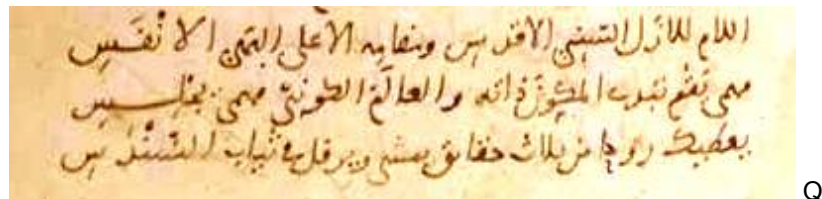 اللام للازل السني الاقدس ومقامه الاعلى البهي الا نْفَسِ
مهمى يَقُم تبدى المكوِّن ذاته والعالَم الكوني مهمى يجلس
يعطيك روحا من ثلاث حقائق يمشي ويرفل في ثياب السُّنْدُسِ
Q